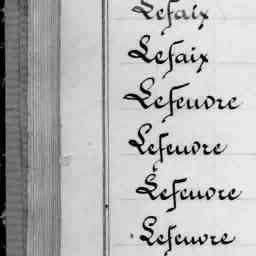 Lefaix
Lefaix
Lefeuvre
Lefeuvre
Lefeuvre
Lefeuvre